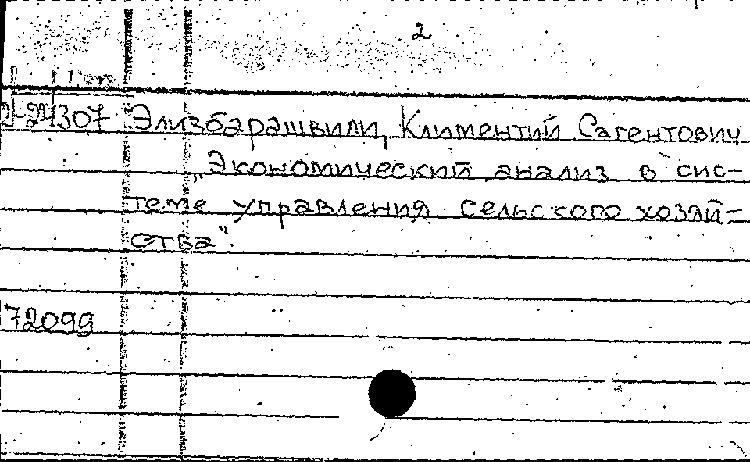 2
24307 Элизбарашвили, Климентий Сагентович
„Экономический анализ в сис-
теме управления сельского хозяй=
ства".
72099